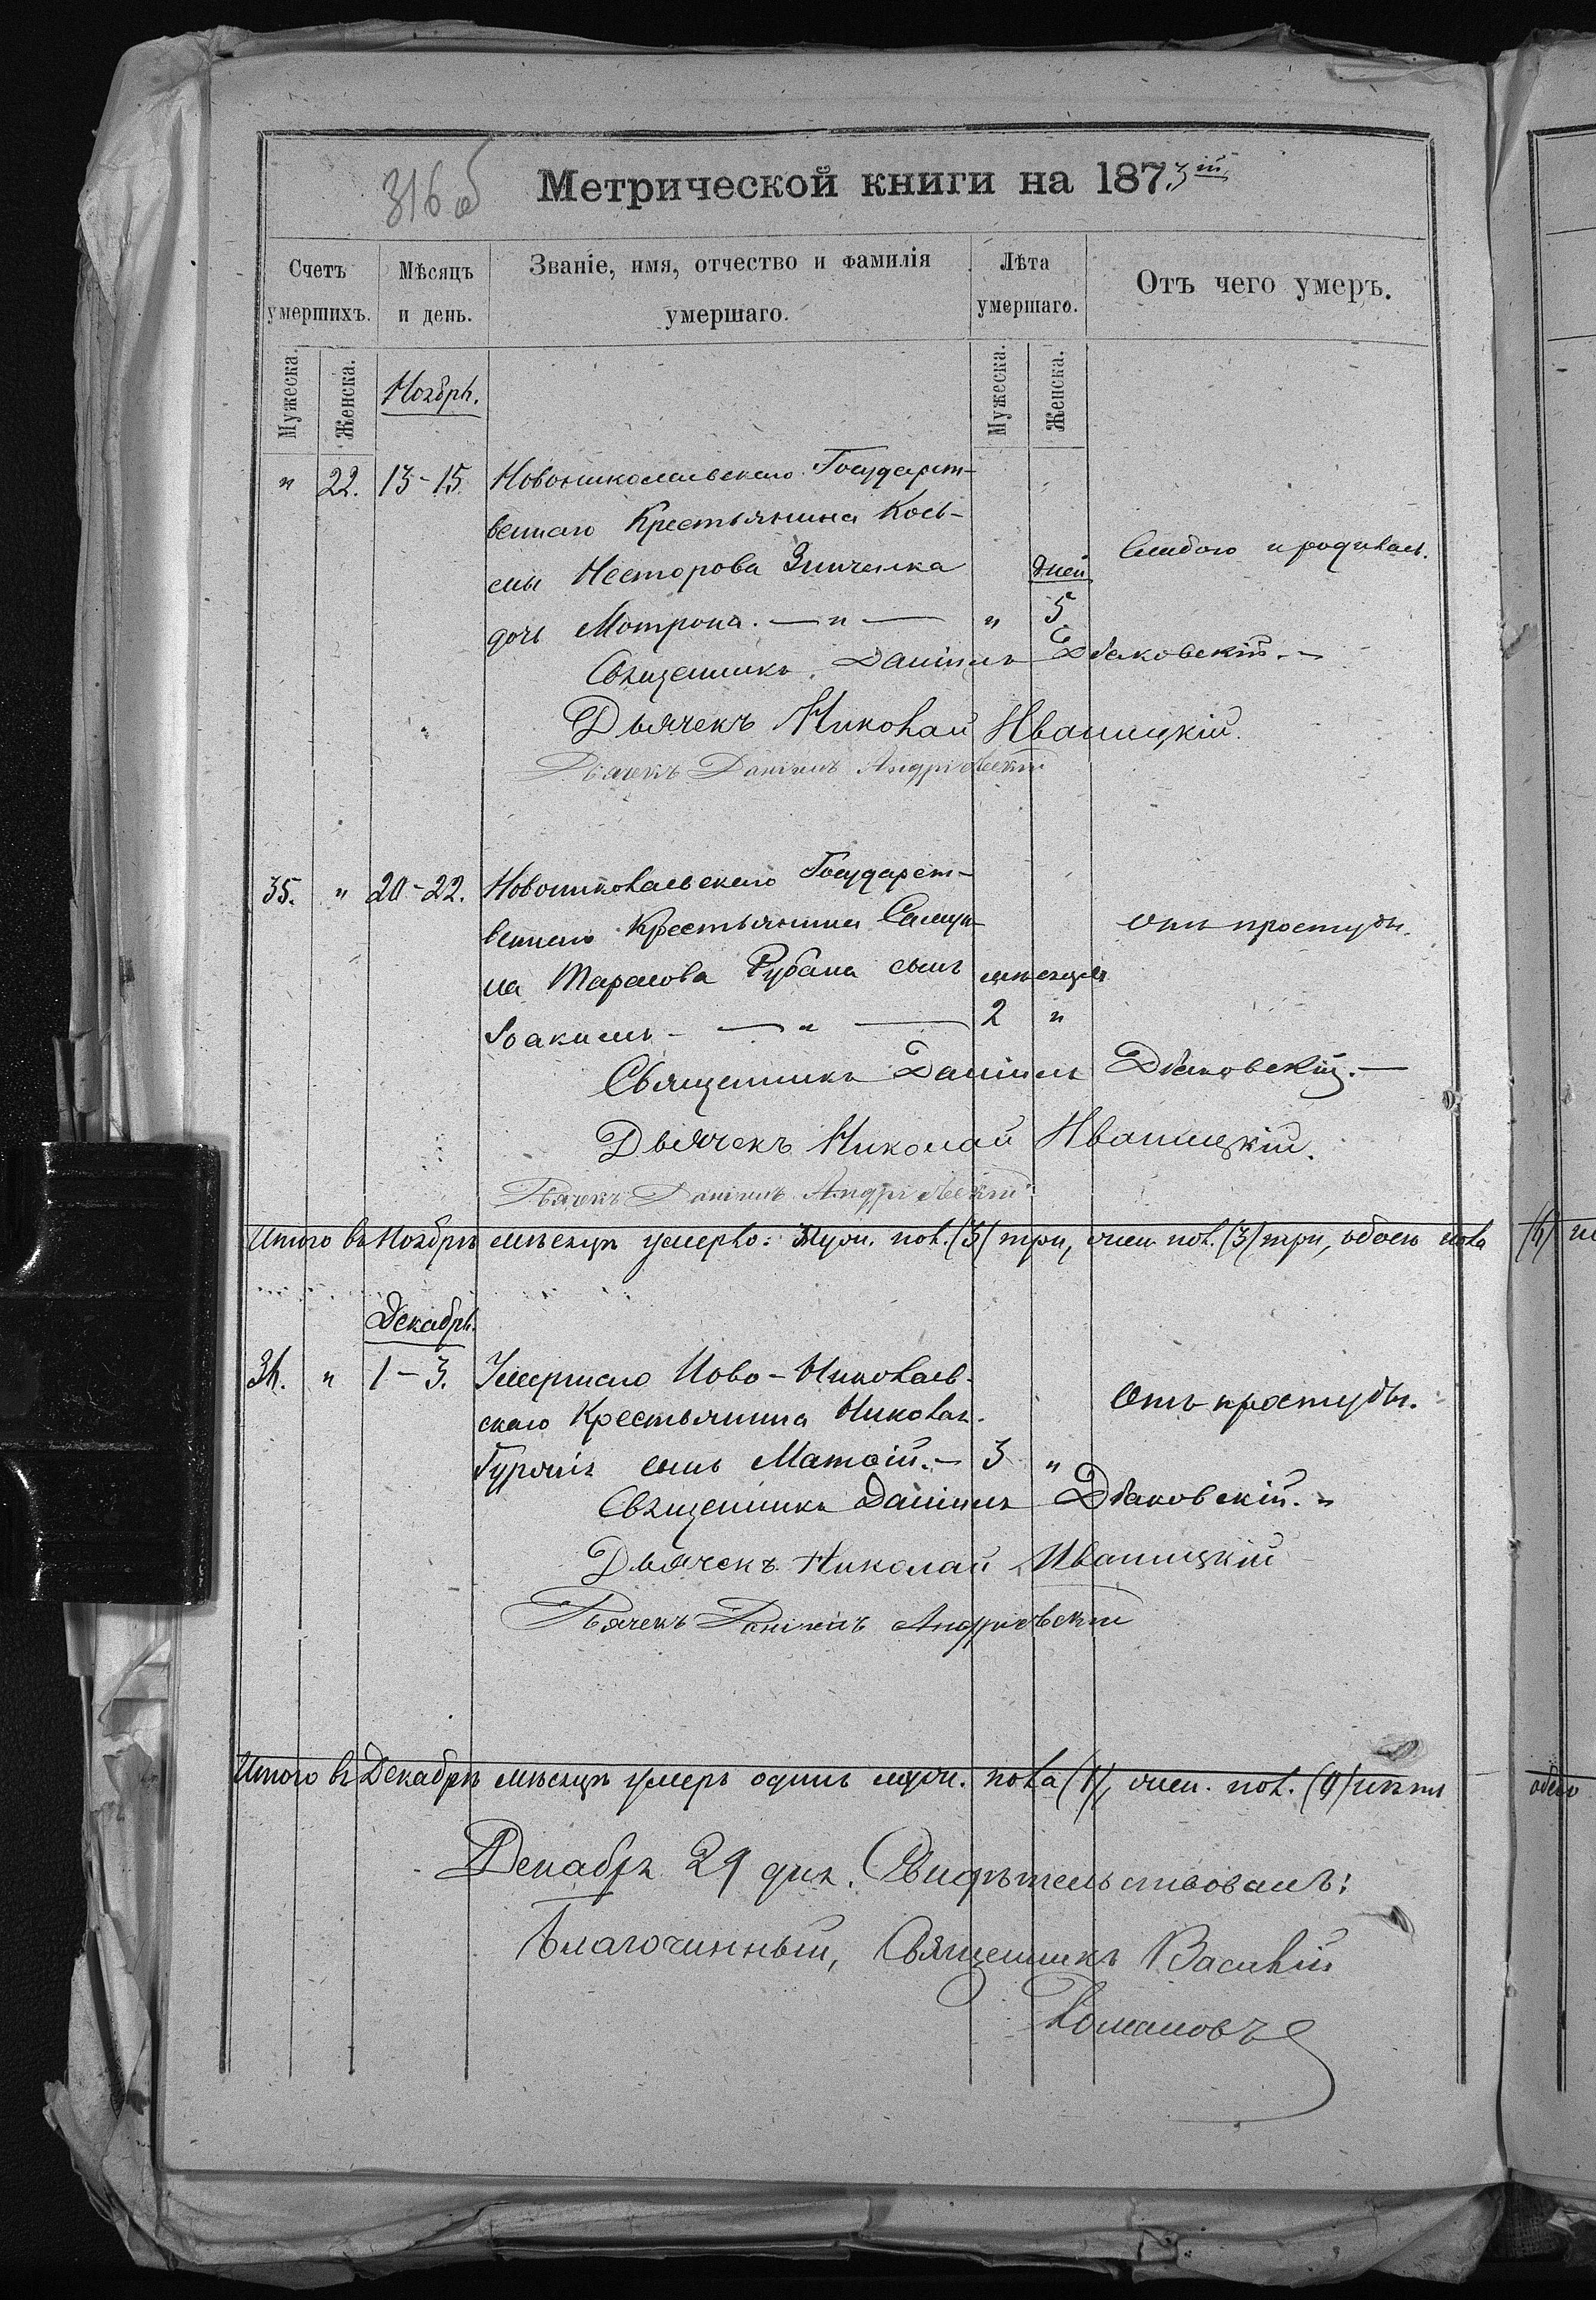 316 об
Метрической книги на 1873ій
Счетъ умершихъ. Мѣсяцъ и день. Званіе, имя, отчество и фамилія умершаго. Лѣта умершаго. Отъ чего умеръ.
Мужеска. Женска. Ноябрь. Мужеска. Женска.
" 22. 13-15. Новониколаевскаго Государст-
веннаго Крестьянина Кось-
мы Несторова Зинченка дней Слабою и родилась.
дочь Мотрона. — " — " 5.
Священникъ Даніилъ Дьяковскій.
Дьячекъ Николай Иваницкій.
Дьячекъ Даніилъ Андріевскій
35. " 20-22. Новониколаевскаго Государст-
веннаго Крестьянина Самуи-
ла Тарасова Рубана сынъ мѣсяца отъ простуды.
Іоакимъ - — " — 2 "
Священникъ Даніилъ Дьяковскій. —
Дьячекъ Николай Иваницкій.
Дьячекъ Даніилъ Андріевскій
Итого въ Ноябрѣ мѣсяцѣ умерло: муж. пол. (3) три, жен. пол. (3) три, обоего пола (6)
Декабрь.
36. " 1-3. Умершаго Ново-Николаев-
скаго Крестьянина Николая отъ простуды.
сынъ Матѳій. — 3 "
Священникъ Даніилъ Дьяковскій.
Дьячекъ Николай Иваницкій
Дьячекъ Даніилъ Андріевскій
Итого въ Декабрѣ мѣсяцѣ умеръ одинъ муж. пола (1), жен. пол. (0) нѣтъ обего
Декабря 29 дня. Свидѣтельствовалъ:
Благочинный, Священникъ Василій
Романовъ